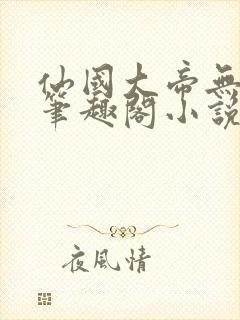 仙國大帝無
筆趣閣小説
夜風情